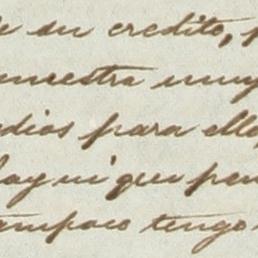 e su credito, p
muestra muy
dios para ello,
hay ni que pen
tampoco tengo